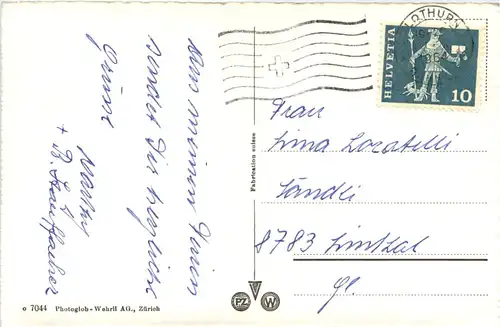 Aus meinen Ferien
sendet Dir herzliche
Grüsse
+ B. Stauffacher
Frau
Lina Locatelli
Ländli
8783 Linthal
Gl.
HELVETIA
10
Fabrication suisse
o 7044 Photoglob-Wehrli AG., Zürich
PZ W